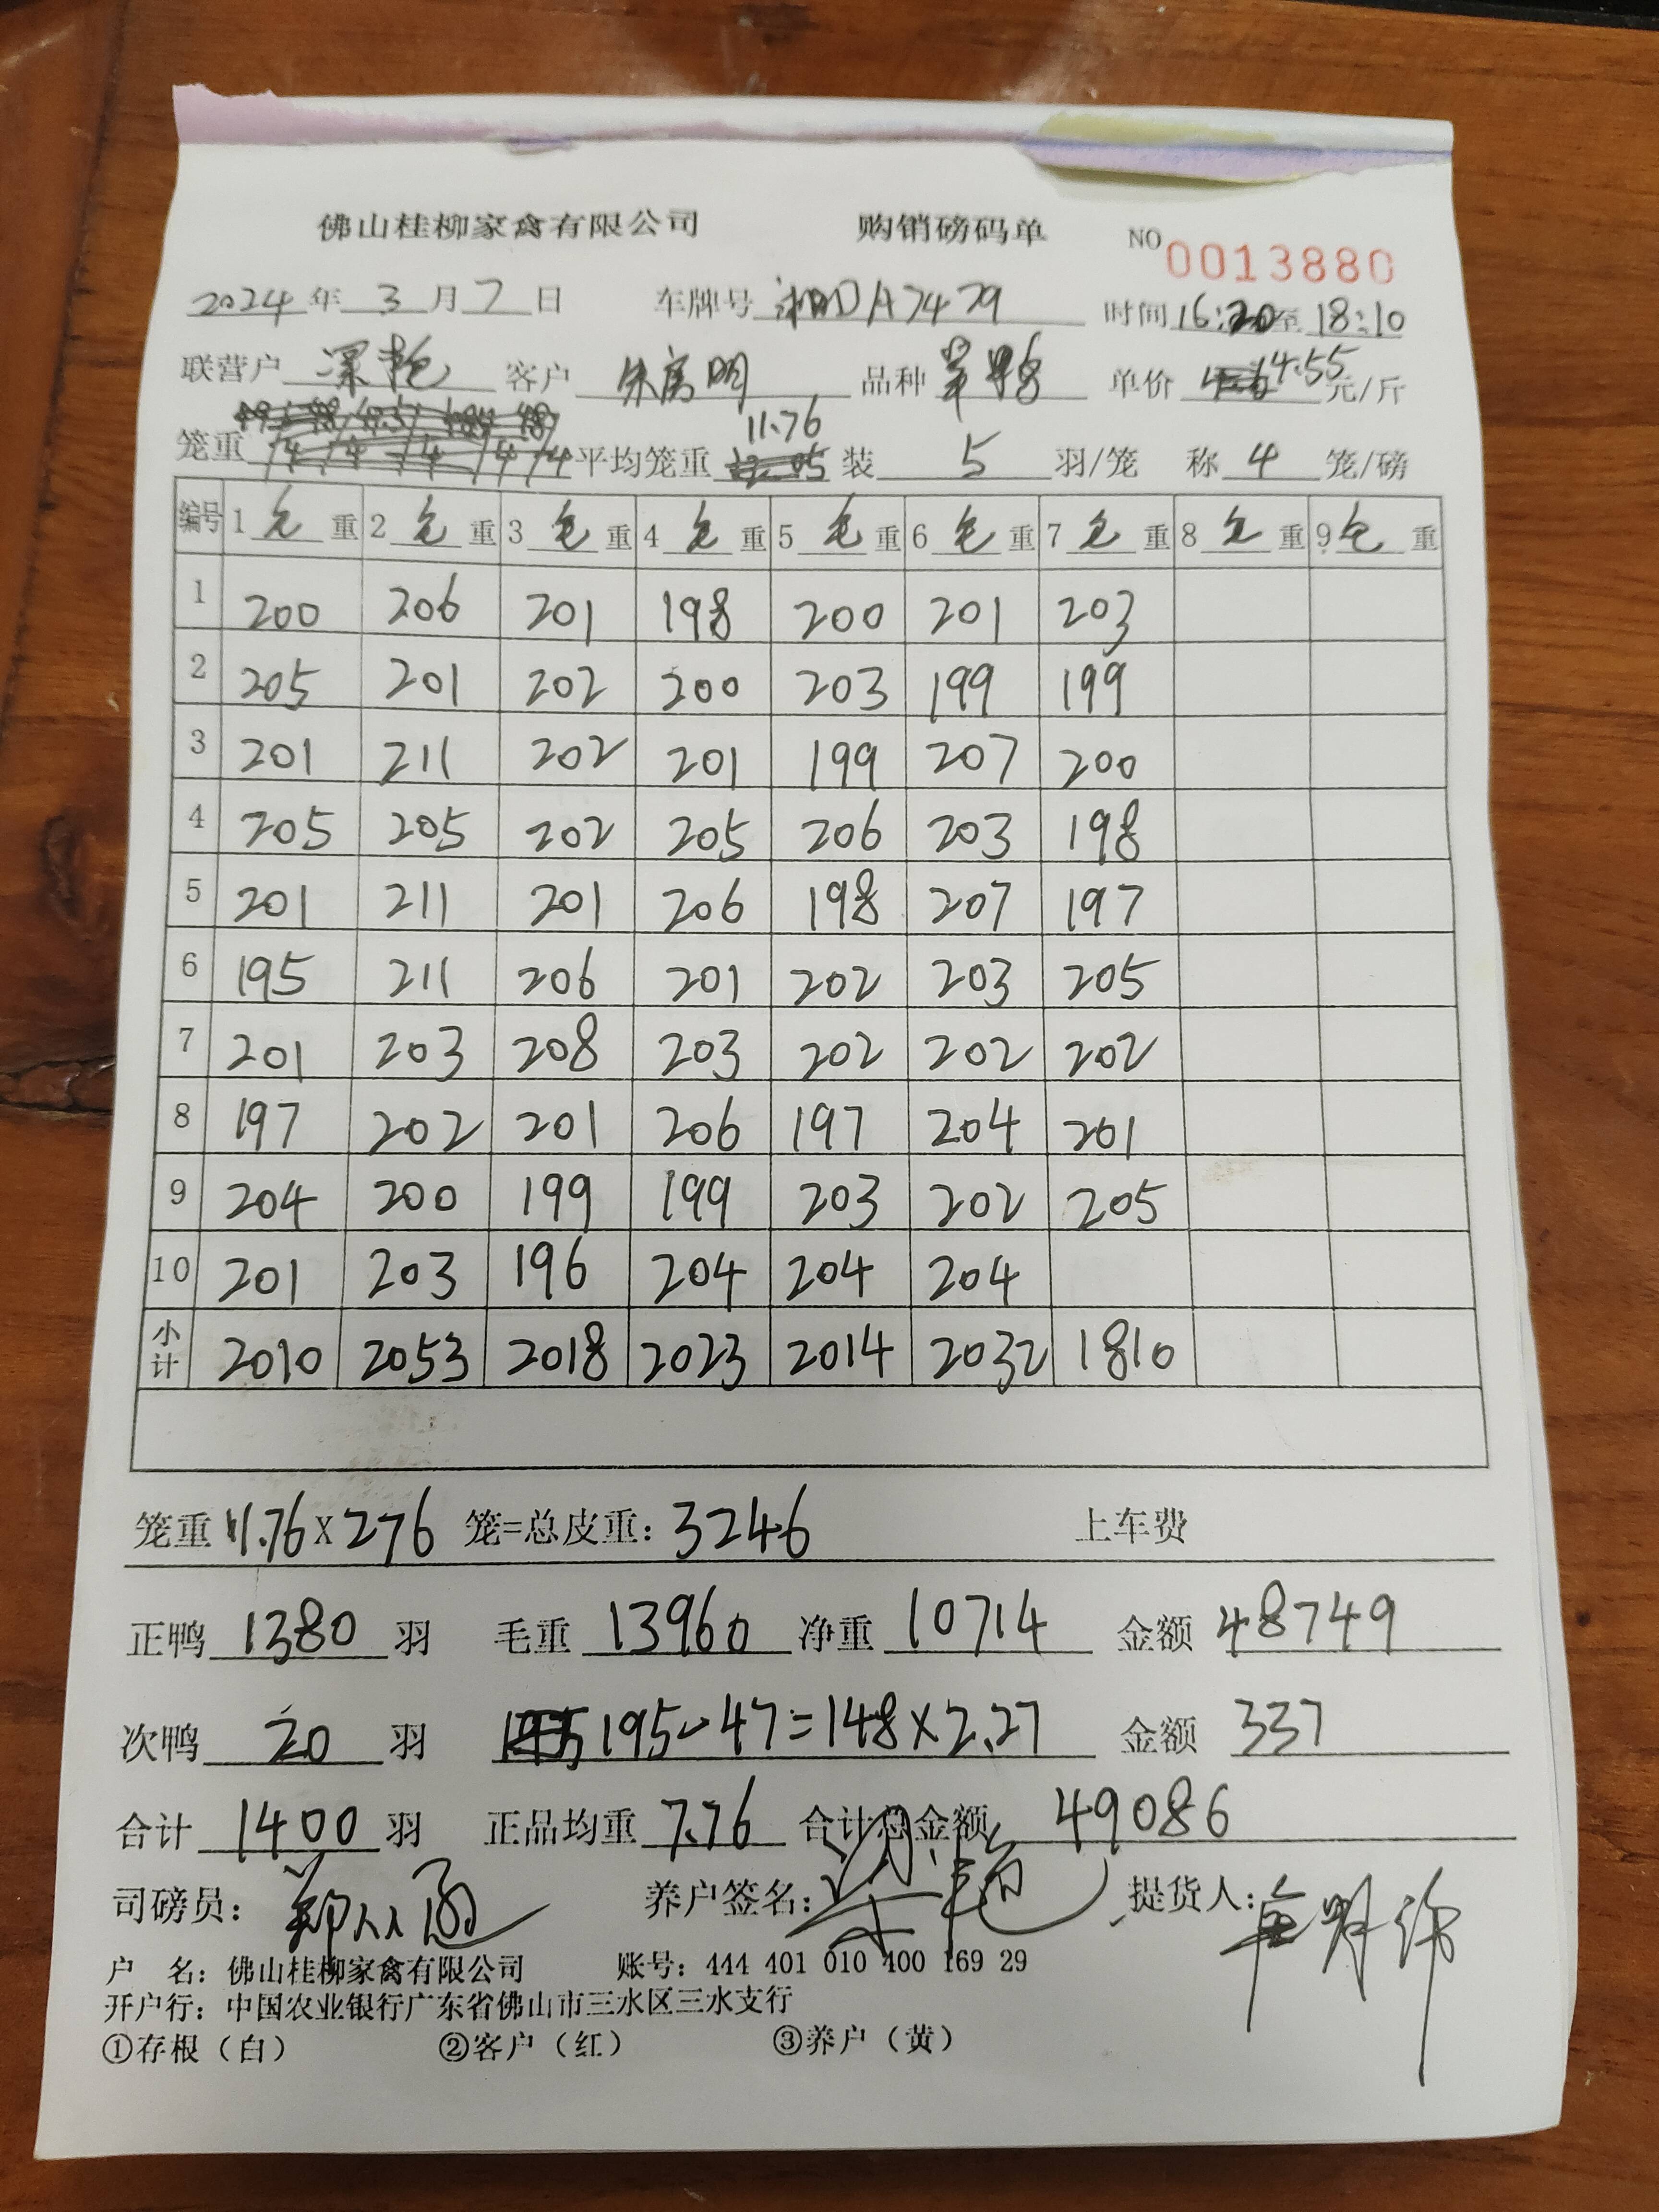 佛山桂柳家禽有限公司 购销磅码单 NO 0013880
2024 年 3 月 7 日 车牌号 湘DA7479 时间 16:20 至 18:10
联营户 客户 朱 明 品种 单价 4.55 元/斤
笼重 平均笼重 11.76 装 5 羽/笼 称 4 笼/磅
编号 1 毛 重 2 毛 重 3 毛 重 4 毛 重 5 毛 重 6 毛 重 7 毛 重 8 毛 重 9 毛 重
1 200 206 201 198 200 201 203
2 205 201 202 200 203 199 199
3 201 211 202 201 199 207 200
4 205 205 202 205 206 203 198
5 201 211 201 206 198 207 197
6 195 211 206 201 202 203 205
7 201 203 208 203 202 202 202
8 197 202 201 206 197 204 201
9 204 200 199 199 203 202 205
10 201 203 196 204 204 204
小计 2010 2053 2018 2023 2014 2032 1810
笼重 11.76 X 276 笼=总皮重: 3246 上车费
正鸭 1380 羽 毛重 13960 净重 10714 金额 48749
次鸭 20 羽 195-47=148×2.27 金额 337
合计 1400 羽 正品均重 7.76 合计总金额 49086
司磅员: 养户签名: 提货人:
户 名: 佛山桂柳家禽有限公司 账号: 444 401 010 400 169 29
开户行: 中国农业银行广东省佛山市三水区三水支行
①存根(白) ②客户(红) ③养户(黄)